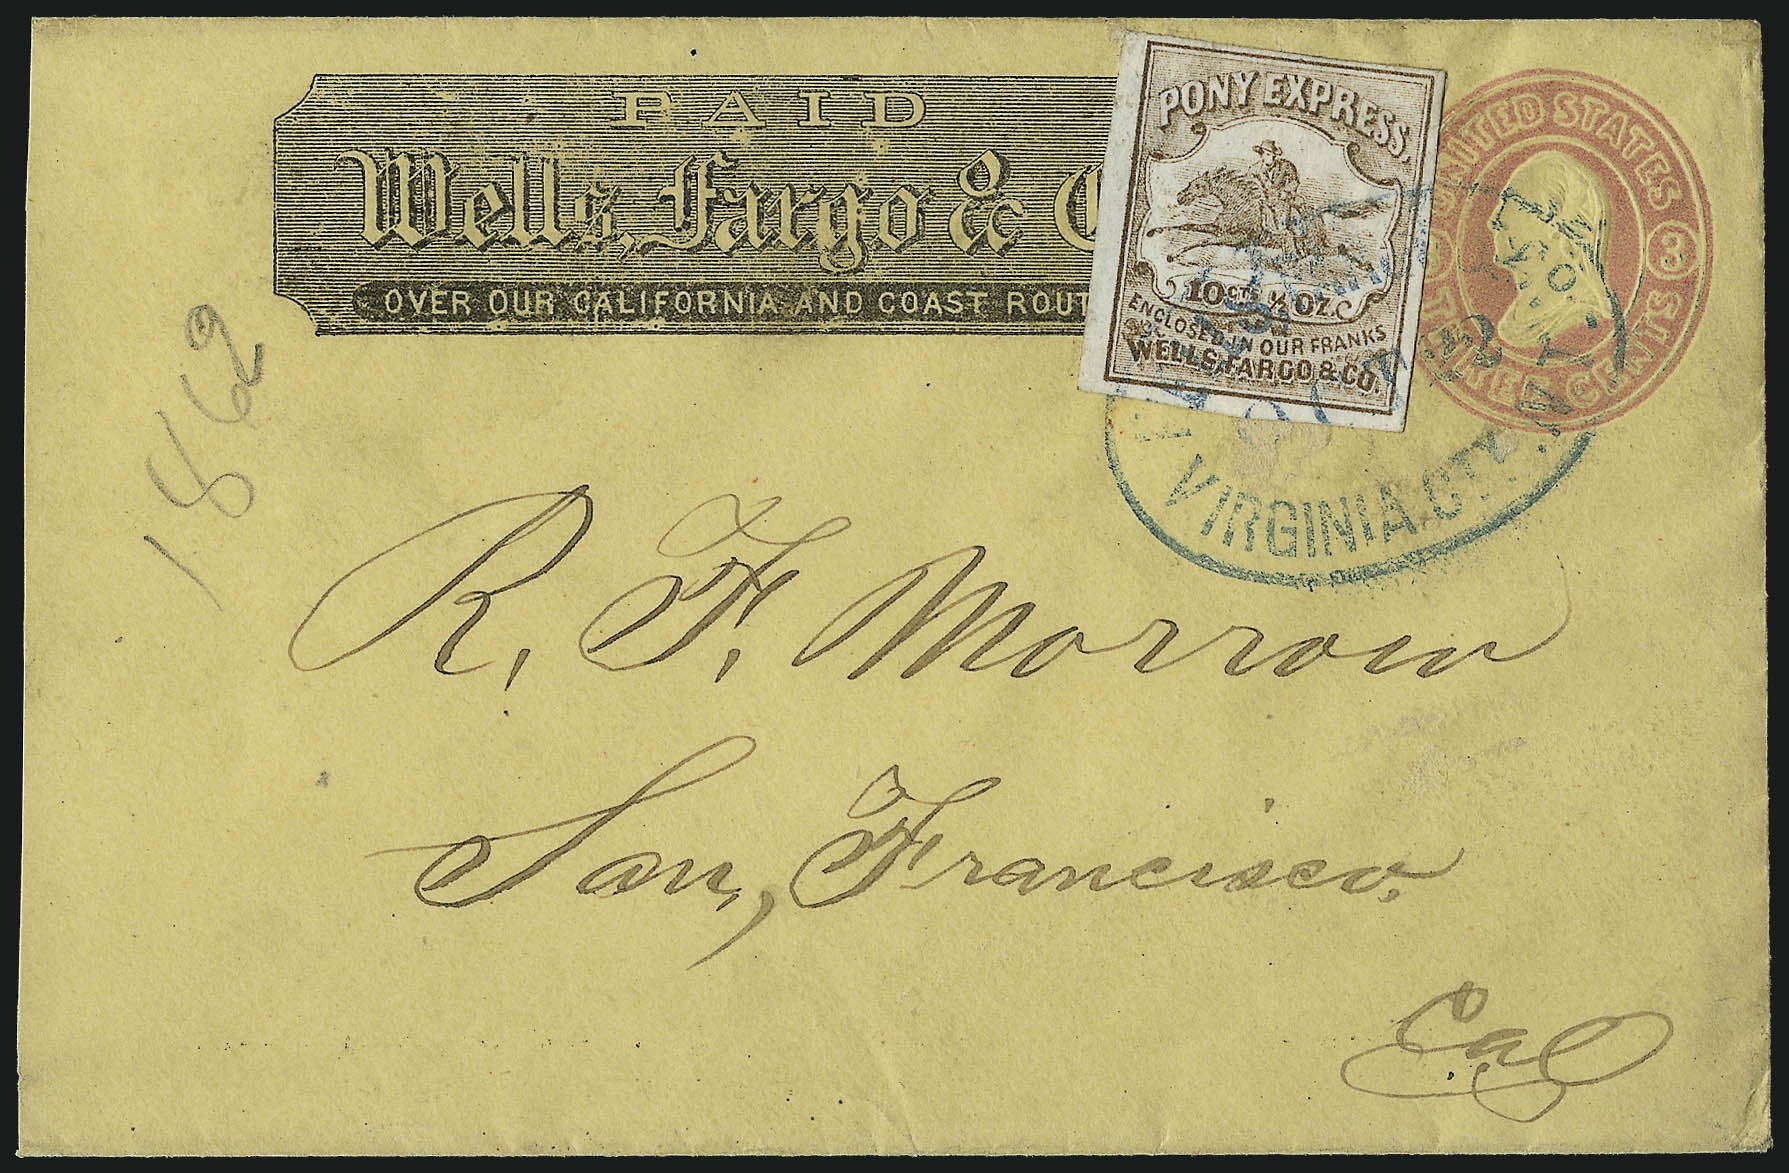 PAID
Wells, Fargo & C
OVER OUR CALIFORNIA AND COAST ROUT
PONY EXPRESS.
10 CTS ½ OZ.
ENCLOSED IN OUR FRANKS
WELLS, FARGO & CO.
UNITED STATES
3
THREE CENTS
22
VIRGINIA CITY N.T.
1862
R. F. Morrow
San, Francisco.
Cal